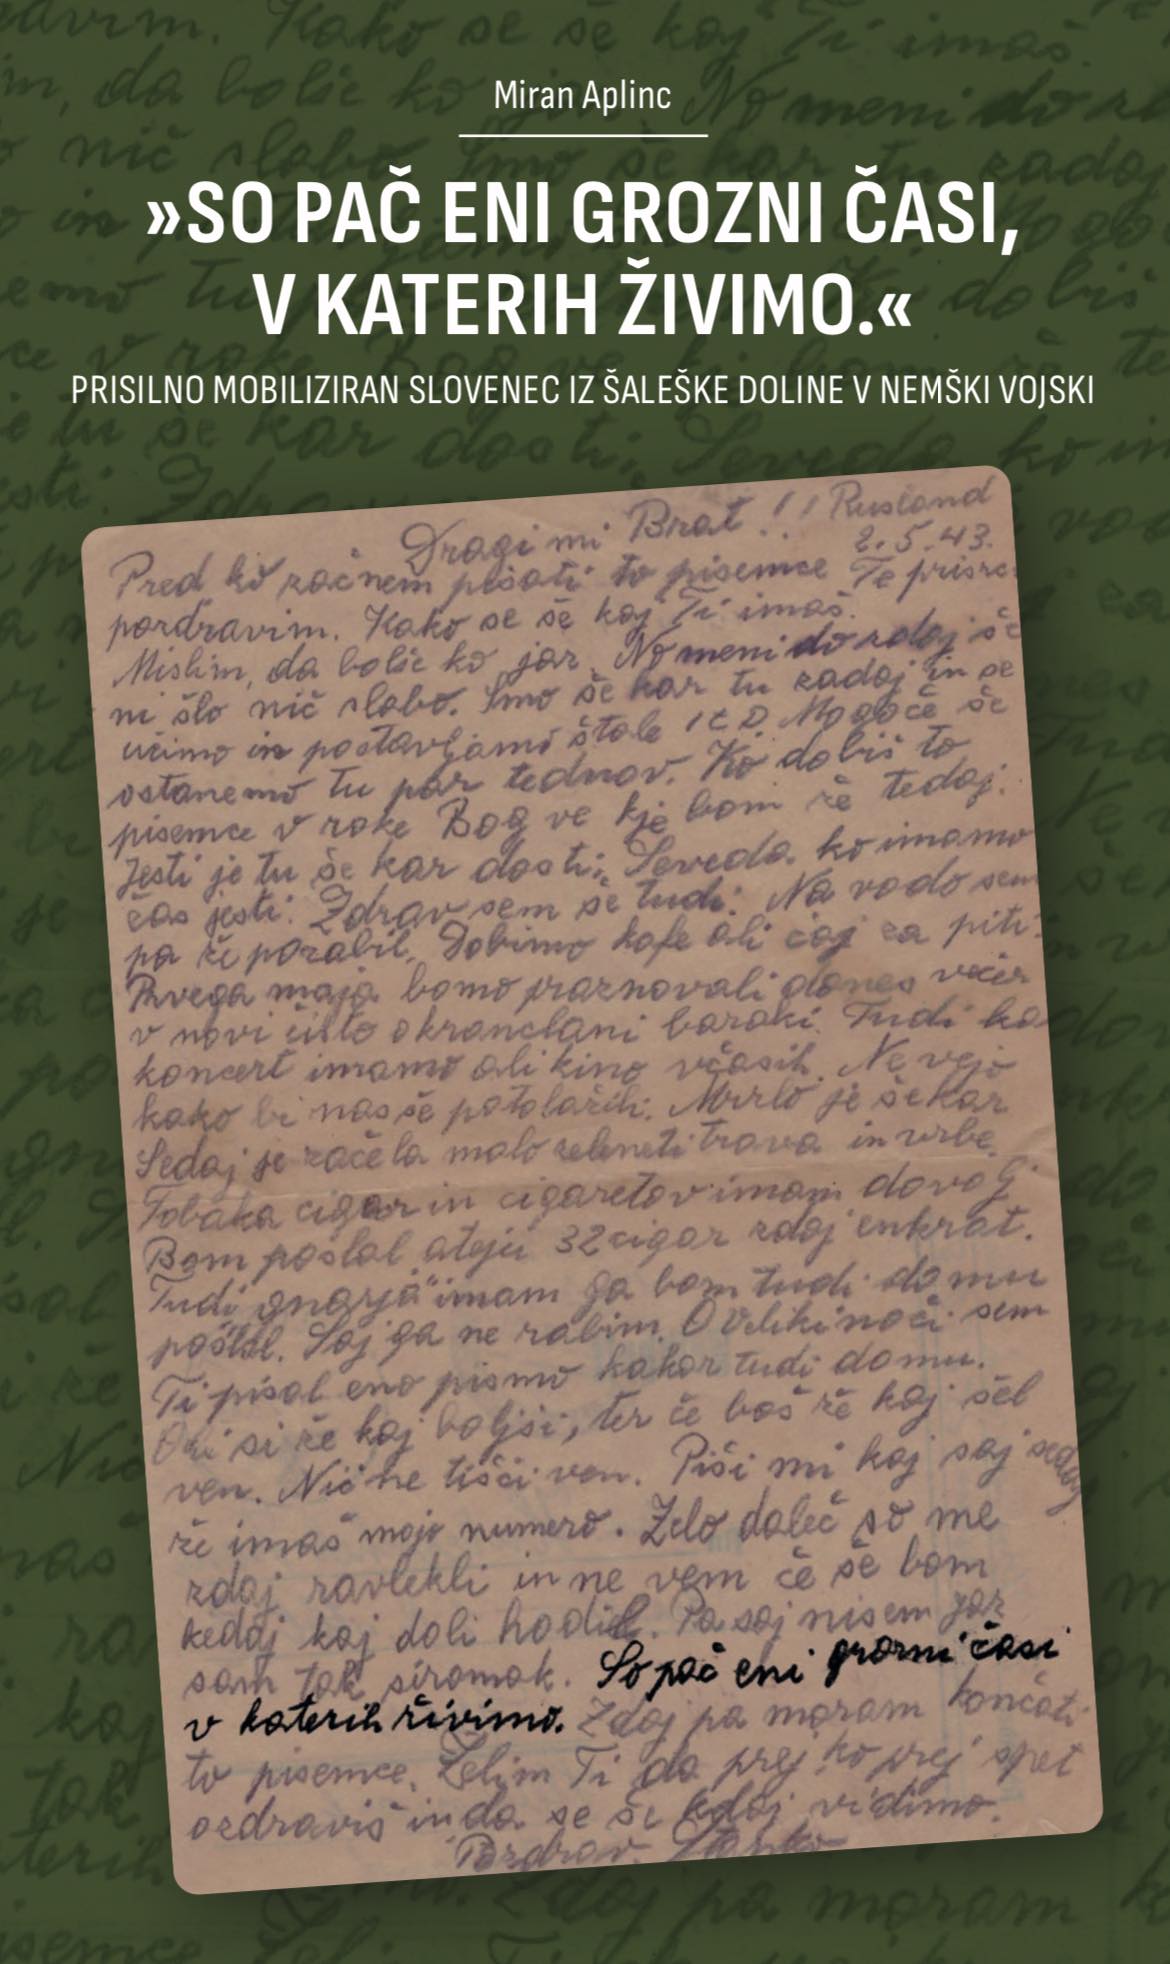 Miran Aplinc
»SO PAČ ENI GROZNI ČASI,
V KATERIH ŽIVIMO.«
PRISILNO MOBILIZIRAN SLOVENEC IZ ŠALEŠKE DOLINE V NEMŠKI VOJSKI
Dragi mi Brat!! Rusland
2.5.43.
Pred ko začnem pisati to pisemce Te prisrč
pozdravim. Kako se še kaj Ti imaš.
Mislim, da bolše ko jaz. No meni do zdaj še
ni šlo nič slabo. Smo še kar tu zadaj in se
učimo in postavljamo štale i t D. Mogoče še
ostanemo tu par tednov. Ko dobiš to
pisemce v roke Bog ve kje bom že tedaj.
Jesti je tu še kar dosti. Seveda ko imamo
čas jesti. Zdrav sem še tudi. Na vodo sem
pa že pozabil. Dobimo kafe ali čaj za piti.
Prvega maja bomo praznovali danes večer
v novi čisto okranclani baraki. Tudi ka
koncert imamo ali kino včasih. Ne vejo
kako bi nas še potolažili. Mrzlo je še kar
Sedaj je začela malo zeleneti trava in vrbe.
Tobaka cigar in cigaretov imam dovolj
Bom poslal ateju 32 cigar zdaj enkrat.
Tudi gnarja imam ga bom tudi domu
poštlal. Saj ga ne rabim. O Veliki noči sem
Ti pisal eno pismo kakor tudi domu.
si že kaj boljši, ter če boš že kaj šel
ven. Nič ne tišči ven. Piši mi kaj saj sedaj
že imaš mojo numero. Zelo daleč so me
zdaj zavlekli in ne vem če še bom
kedaj kaj doli hodil. Pa saj nisem jaz
sam tak siromak. So pač eni grozni časi
v katerih živimo. Zdaj pa moram končati
to pisemce. Želim Ti da prej ko prej spet
ozdraviš in da se še kdaj vidimo.
Pozdrav. Stanko